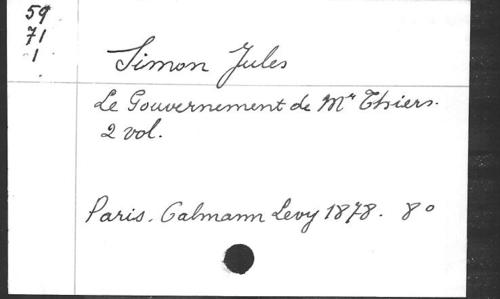 59
71
1
Simon Jules
Le Gouvernement de Mr Thiers.
2 vol.
Paris. Calmann Levy 1878. 8o